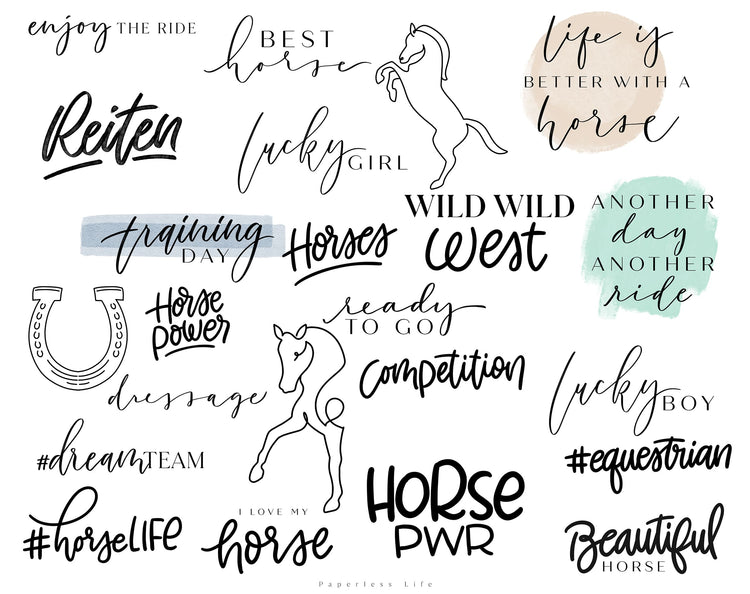 enjoy THE RIDE
BEST
horse
life is
BETTER WITH A
horse
Reiten
lucky GIRL
WILD WILD
west
ANOTHER
day
ANOTHER
ride
training
DAY
Horses
Horse
power
ready
TO GO
dressage
competition
lucky BOY
#dreamTEAM
#equestrian
HORSe
PWR
#horseLIFE
I LOVE MY
horse
Beautiful
HORSE
Paperless Life